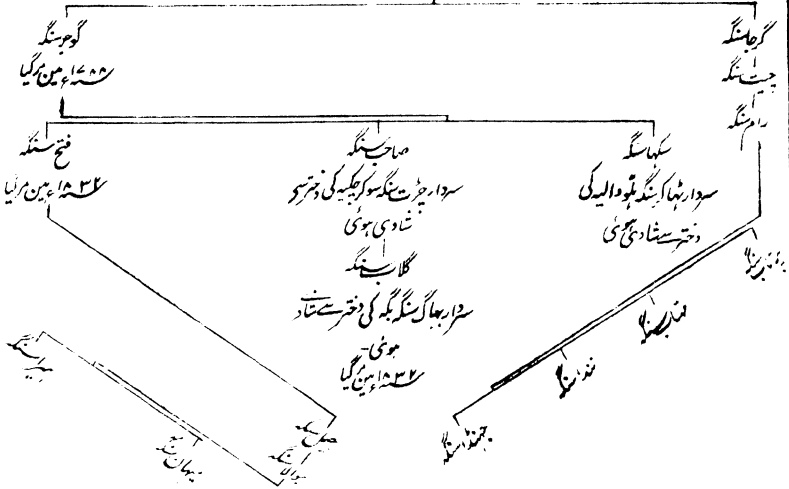 گرجا سنگہ
چیت سنگہ
رام سنگہ
گوجر سنگہ
۱۷۸۸ء مین مرگیا
سکہا سنگہ
سردار ٹہاکر سنگہ
والیہ کی
دختر سے شادی ہوئی
صاحب سنگہ
سردار چڑت سنگہ سوکرچکیہ کی دختر سے
شادی ہوئی
گلاب سنگہ
سردار بھاگ سنگہ بگہ کی دختر سے شادے
ہوئی-
۱۸۳۲ء مین مرگیا
فتح سنگہ
۱۸۳۲ء مین مرگیا
مہتاب سنگہ
نند سنگہ
جہنڈا سنگہ
جیمل سنگہ
جوالا سنگہ
نہان سنگہ
ہیرا سنگہ